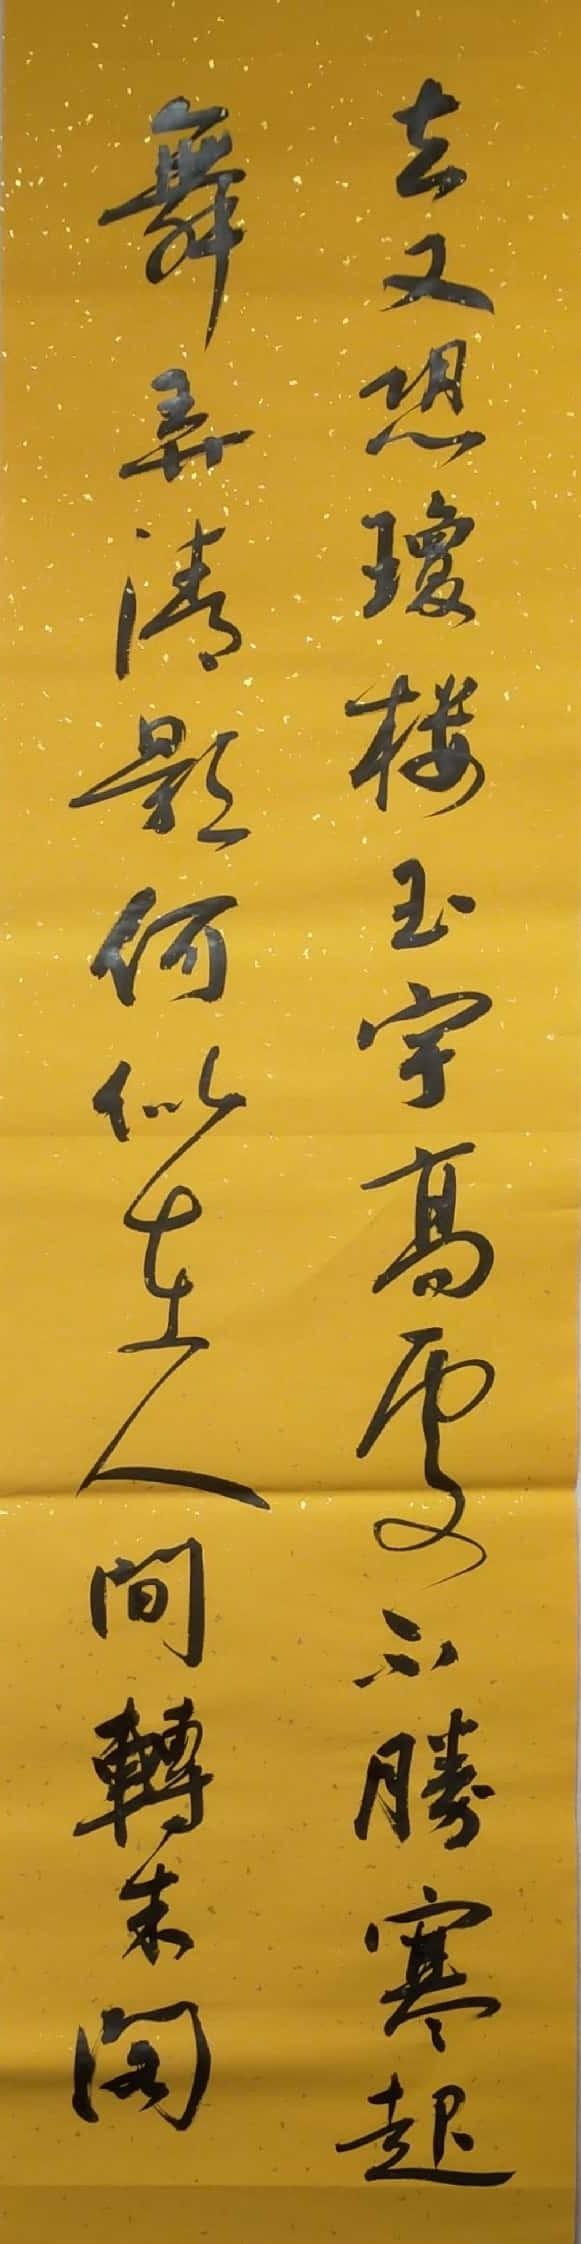 去又恐瓊楼玉宇高處不勝寒起
舞弄清影何似在人間轉朱閣